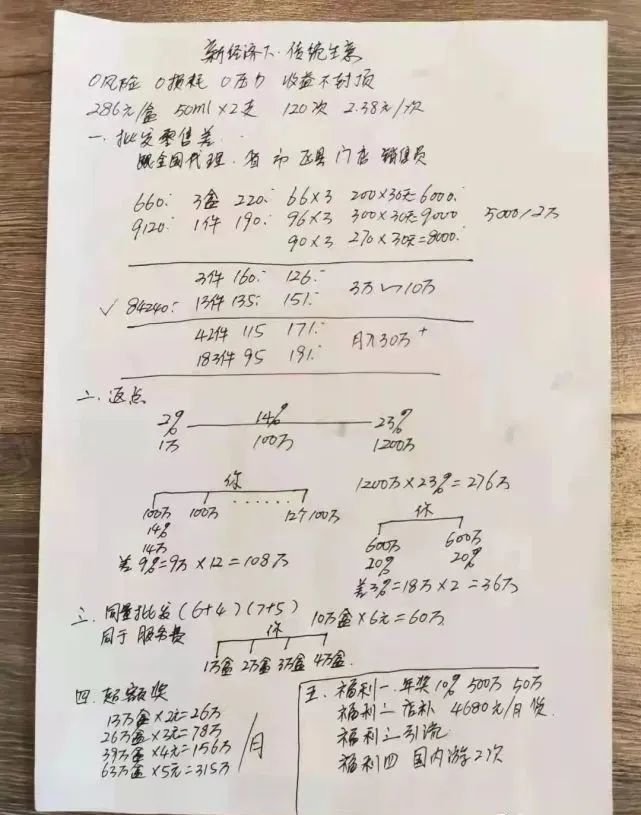 新经济下·传统生意
0风险 0损耗 0压力 收益不封顶
286元/盒 50ml×2支 120次 2.38元/次
一、批发零售差
全国代理、省 市 区县 门店 销售员
660 3盒 220 66×3 200×30天=6000
9120 1件 190 96×3 300×30天=9000 5000~2万
90×3 270×30天=8000
3件 160 126 3万~10万
✓ 84240 13件 135 151
42件 115 171 月入30万+
183件 95 191
二、返点
2% —— 14% —— 23%
1万 100万 1200万
你
100万 100万 ...... 12个100万
14%
14万
差9%=9万×12=108万
1200万×23%=276万
你
600万 600万
20% 20%
差3%=18万×2=36万
三、同量批发(6+4)(7+5) 10万盒×6元=60万
同于 服务费
你
1万盒 2万盒 3万盒 4万盒
四、超额奖
13万盒×2元=26万
26万盒×3元=78万
39万盒×4元=156万
63万盒×5元=315万
/月
五、福利一、年奖10% 500万 50万
福利二 店补 4680元/月 货
福利三 引流
福利四 国内游2次